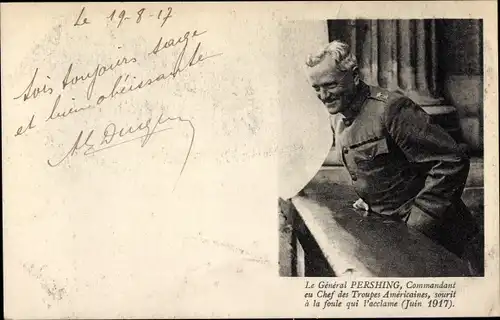 Le 19-8-17
Sois toujours sage
et bien obéissante
Le Général PERSHING, Commandant
en Chef des Troupes Américaines, sourit
à la foule qui l'acclame (Juin 1917).